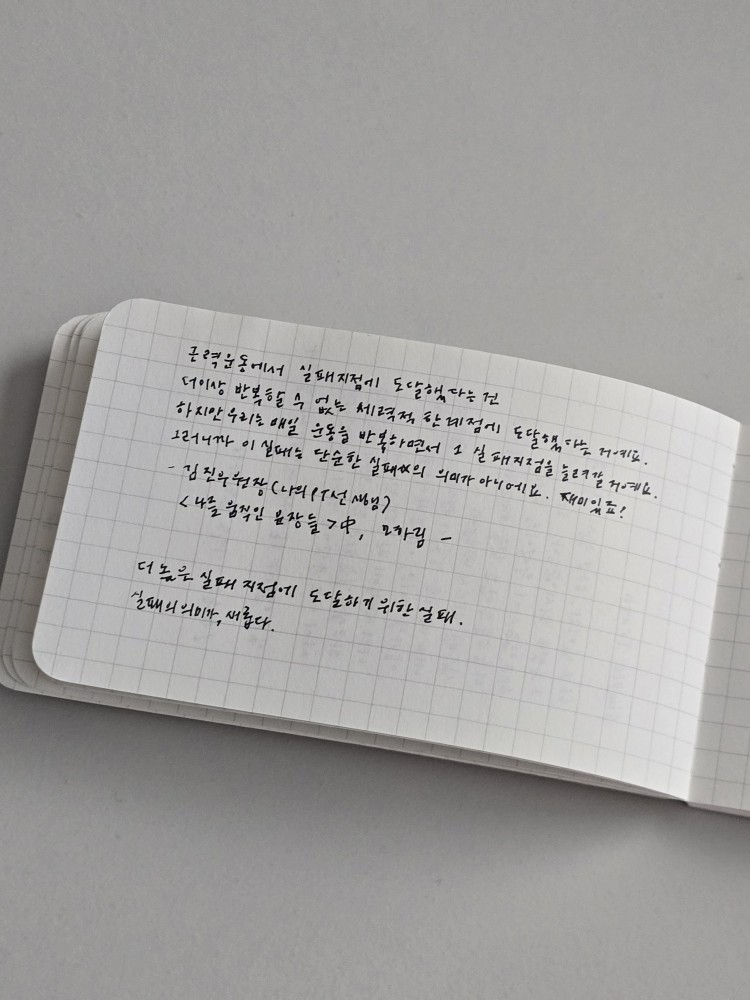 근력운동에서 실패지점에 도달했다는건
더이상 반복할 수 없는 체력적 한계점에 도달했다는 거예요.
하지만 우리는 매일 운동을 반복하면서 그 실패지점을 늘려갈 거예요.
그러니까 이 실패는 단순한 실패의 의미가 아니에요. 재미있죠?
- 김진우원장(나의PT선생님)
<나를 움직인 문장들>中, 오하림 -
더 높은 실패 지점에 도달하기 위한 실패.
실패의 의미가, 새롭다.